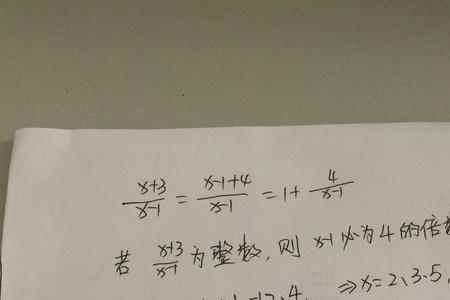 x+3/x-1 = x-1+4/x-1 = 1+ 4/x-1
若 x+3/x-1 为整数,则 x-1必为4的倍
2、4. ⇒x=2、3、5,